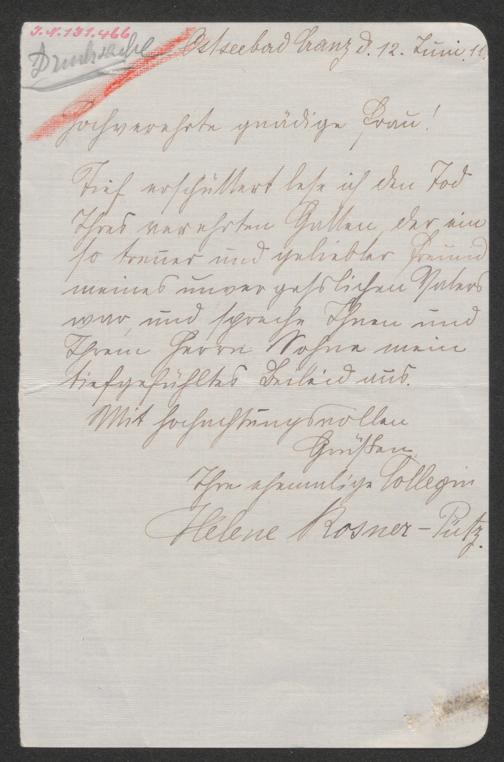 J.N.131.466
Drucksache
Ostseebad Cranz d. 12. Juni 11.
Hochverehrte gnädige Frau!
Tief erschüttert lese ich den Tod
Ihres verehrten Gatten, der ein
so treuer und geliebter Freund
meines unvergesslichen Vaters
war, und spreche Ihnen und
Ihrem Herrn Sohne mein
tiefgefühltes Beileid aus.
Mit hochachtungsvollen
Grüßen
Ihre ehemalige Collegin
Helene Rosner-Pütz.